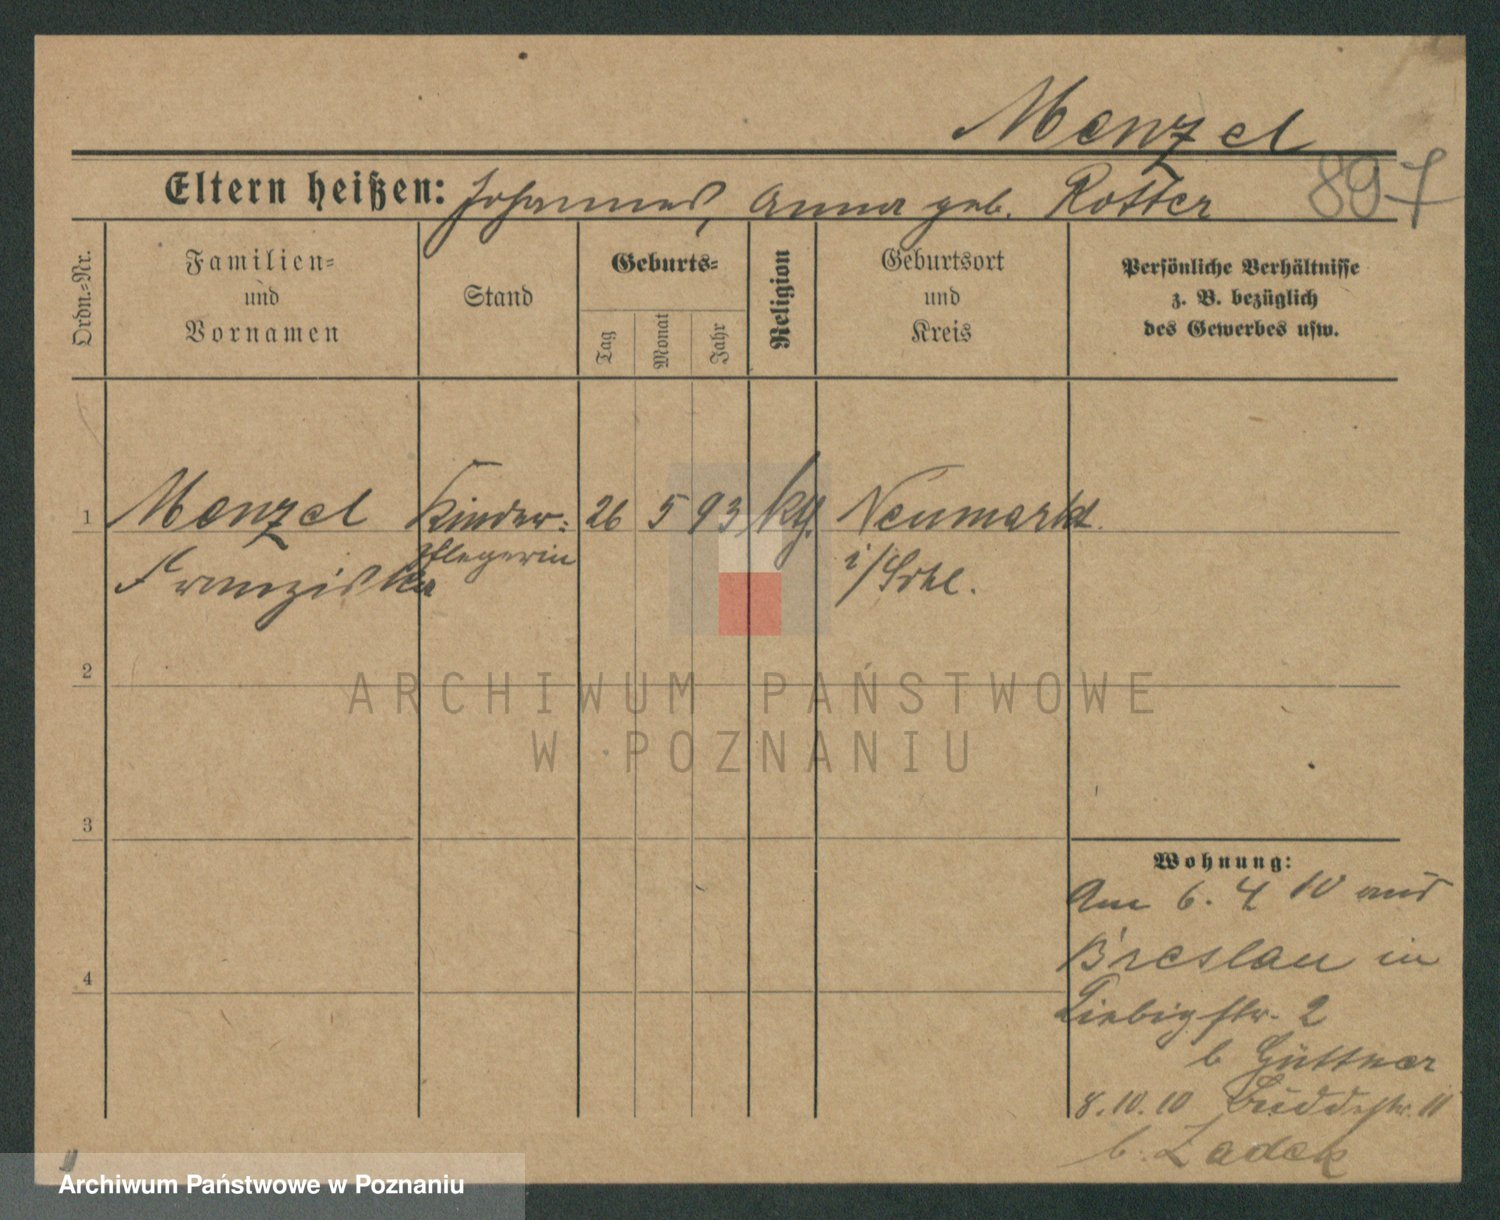 Menzel
Eltern heißen: Johannes, Anna geb. Rotter 897
Ordn.-Nr.
Familien-
und
Vornamen
Stand
Geburts-
Tag
Monat
Jahr
Religion
Geburtsort
und
Kreis
Persönliche Verhältnisse
z. B. bezüglich
des Gewerbes usw.
1 Menzel Kinder- 26 5 93 kg. Neumarkt
Franziska pflegerin i/Schl.
2
ARCHIWUM PAŃSTWOWE
W POZNANIU
3
Wohnung:
Am 6. 4 10 aus
Breslau in
4
Liebigstr. 2
b Güttner
8.10.10 Buddestr. 11
b. Zadek
Archiwum Państwowe w Poznaniu